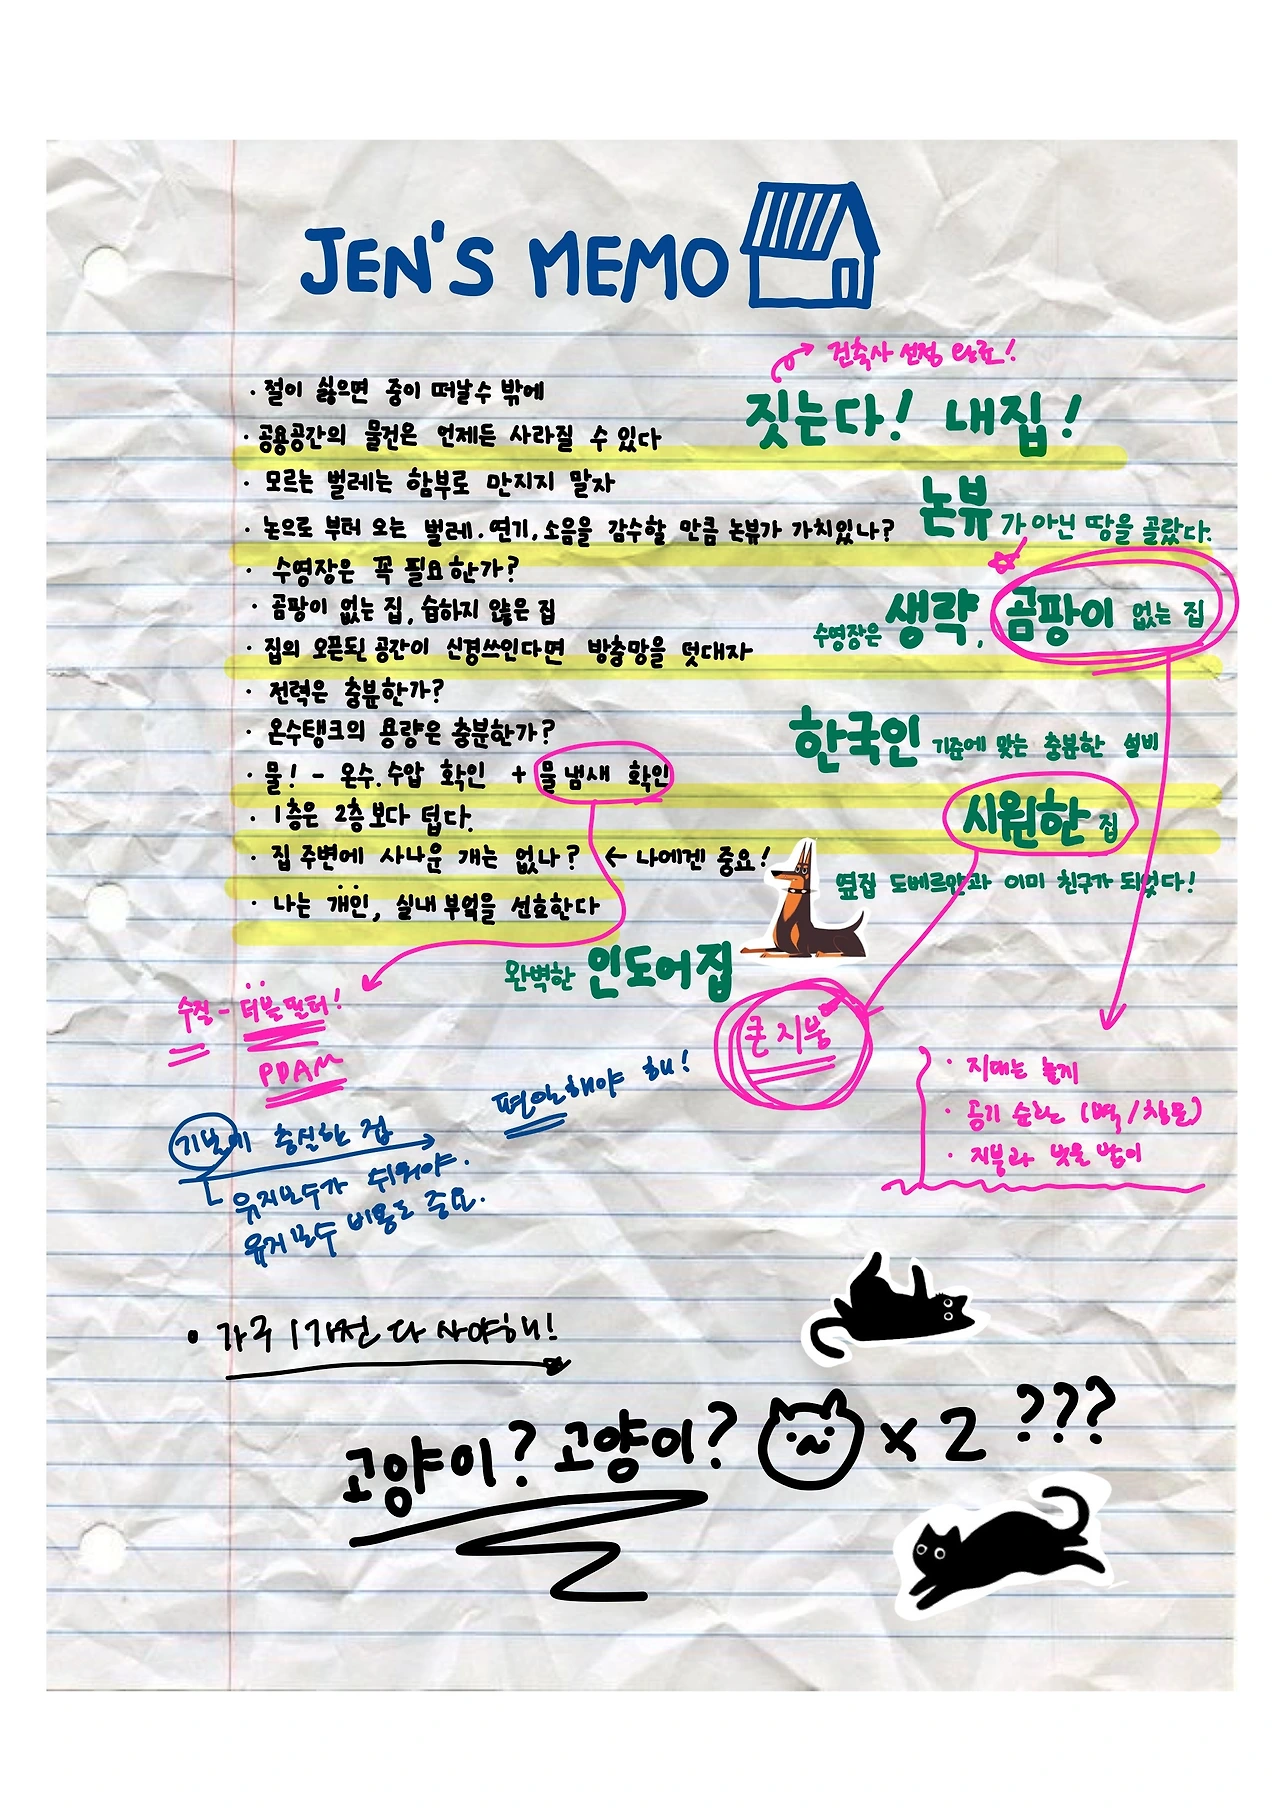 JEN'S MEMO
건축사 선정 완료!
· 절이 싫으면 중이 떠날수 밖에
짓는다! 내집!
· 공용공간의 물건은 언제든 사라질 수 있다
· 모르는 벌레는 함부로 만지지 말자
논뷰가 아닌 땅을 골랐다.
· 논으로 부터 오는 벌레.연기,소음을 감수할 만큼 논뷰가 가치있나?
· 수영장은 꼭 필요한가?
· 곰팡이 없는 집, 습하지 않은 집
수영장은 생략, 곰팡이 없는 집
· 집의 오픈된 공간이 신경쓰인다면 방충망을 덧대자
· 전력은 충분한가?
· 온수탱크의 용량은 충분한가?
한국인 기준에 맞는 충분한 설비
· 물! - 온수.수압 확인 + 물 냄새 확인
· 1층은 2층보다 덥다.
시원한 집
· 집 주변에 사나운 개는 없나? ← 나에겐 중요!
옆집 도베르만과 이미 친구가 되었다!
· 나는 개인, 실내 부엌을 선호한다
완벽한 인도어집
수질 - 더블필터!
PDAM
큰 지붕
· 지대는 높게
· 공기 순환 (벽/창문)
· 지붕과 벗을 많이
편안해야 해!
기본에 충실한 집
유지보수가 쉬워야.
유지보수 비용도 중요.
• 가구/가전 다 사야해!
고양이? 고양이? x 2 ???